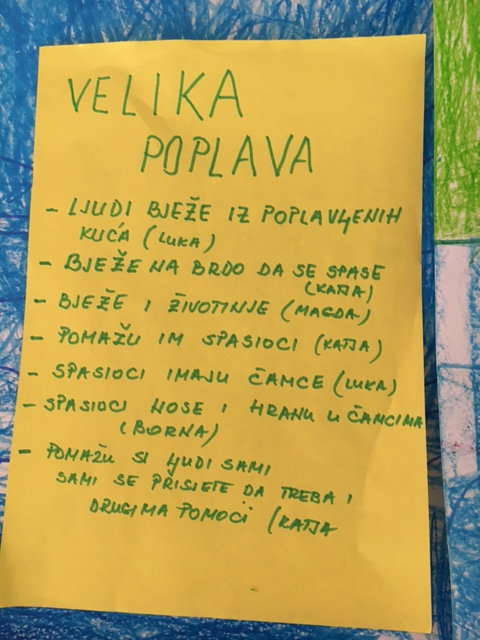 VELIKA
POPLAVA
- LJUDI BJEŽE IZ POPLAVLJENIH
KUĆA (LUKA)
- BJEŽE NA BRDO DA SE SPASE
(KATJA)
- BJEŽE I ŽIVOTINJE (MAGDA)
- POMAŽU IM SPASIOCI (KATJA)
- SPASIOCI IMAJU ČAMCE (LUKA)
- SPASIOCI NOSE I HRANU U ČAMCIMA
(BORNA)
- POMAŽU SI LJUDI SAMI
SAMI SE PRISJETE DA TREBA I
DRUGIMA POMOĆI (KATJA